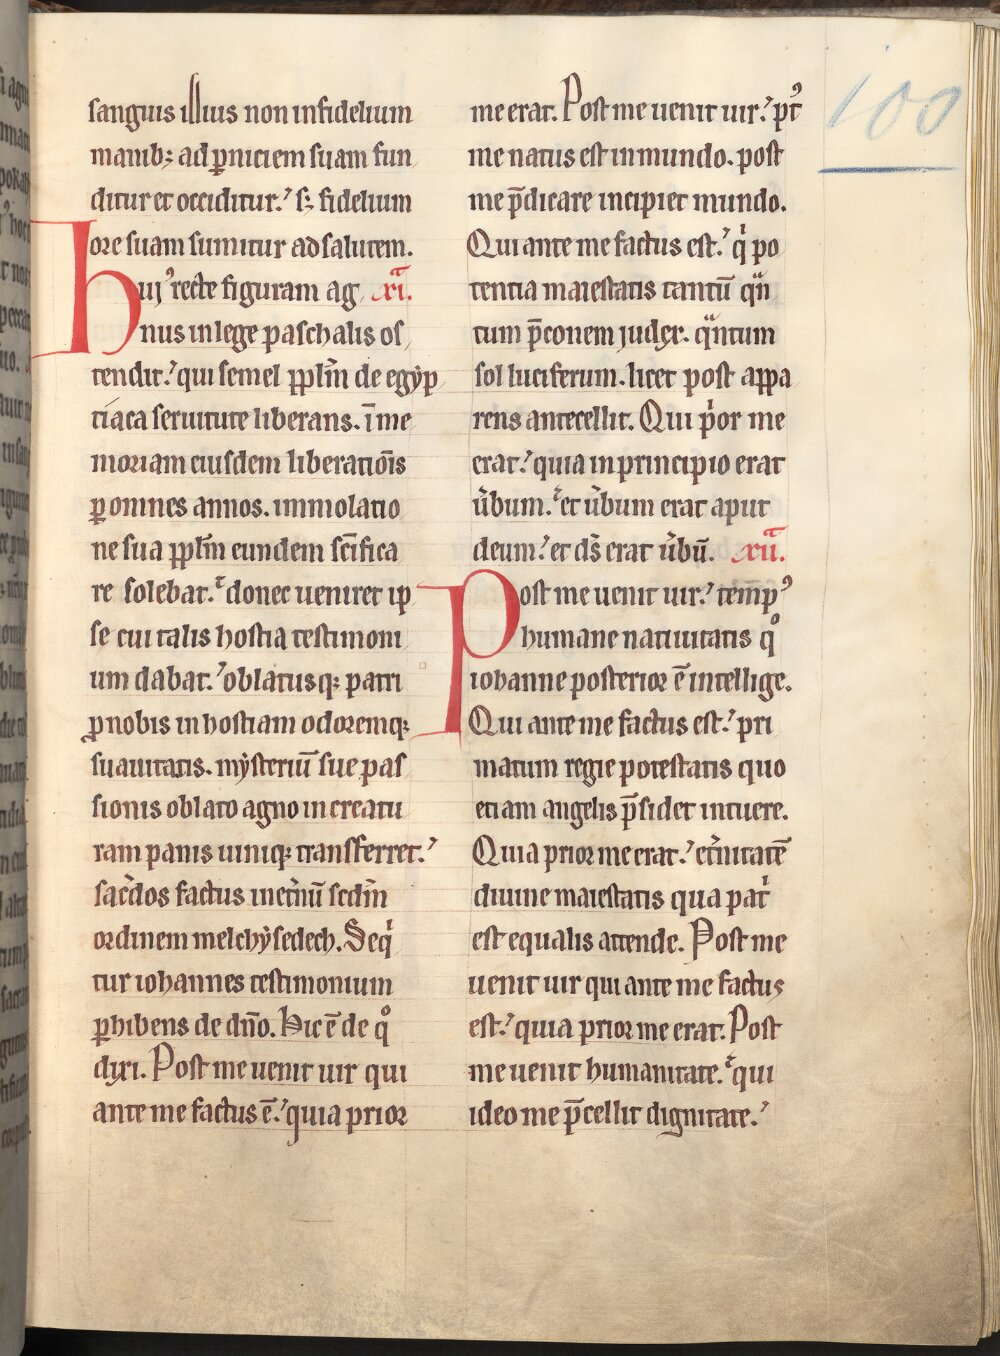 sanguis illius non infidelium
manib; ad ꝑniciem suam fun
ditur et occiditur. s; fidelium
ore suam sumitur ad salutem.
Huiꝰ recte figuram ag xi.
nus in lege paschalis os
tendit. qui semel ppl̄m de egẏp
tiaca seruitute liberans. ī me
moriam eiusdem liberatiōis
ꝑ omnes annos. immolatio
ne sua ppl̄m eundem sc̄ifica
re solebat. donec ueniret ip
se cui talis hostia testimoni
um dabat. oblatusq; patri
ꝓ nobis in hostiam odoremq;
suauitatis. mẏsteriū sue pas
sionis oblato agno in creatu
ram panis uiniq; transferret.
sac̄dos factus inet̄nū sedm̄
ordinem melchẏsedech. Seqͥ
tur iohannes testimonium
ꝑhibens de dn̄o. Hic ē de qͦ
dixi. Post me uenit uir qui
ante me factus ē. quia prior
me erat. Post me uenit uir. pꝰt
me natus est in mundo. post
me p̄dicare incipiet mundo.
Qui ante me factus est. qͥ po
tentia maiestatis tantū qͣn
tum p̄conem judex. qͣntum
sol luciferum. licet post appa
rens antecellit. Qui pͥor me
erat. quia in principio erat
u̇bum. et u̇bum erat aput
deum. et ds̄ erat u̇bū. xii.
Post me uenit uir. tempꝰ
humane natiuitatis qͦ
iohanne posterior ē intellige.
Qui ante me factus est. pri
matum regie potestatis quo
etiam angelis p̄sidet intuere.
Quia prior me erat. et̄nitatē
diuine maiestatis qua patͥ
est equalis attende. Post me
uenit uir qui ante me factus
est. quia prior me erat. Post
me uenit humanitate. qui
ideo me p̄cellit dignitate.
100